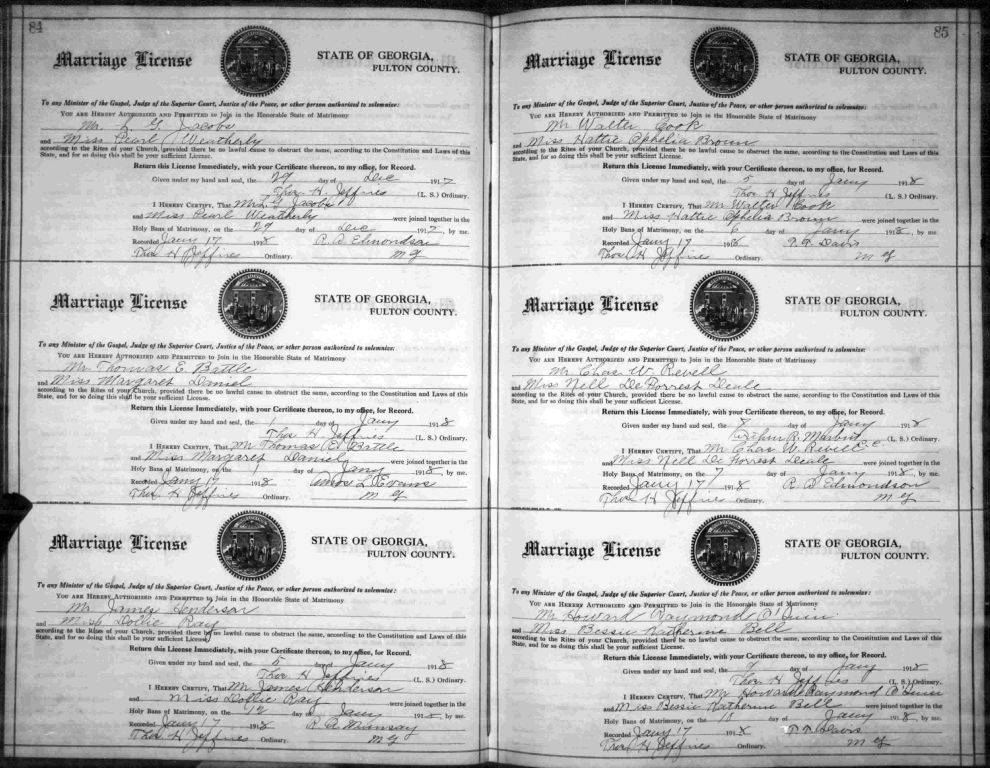 84
Marriage License
STATE OF GEORGIA,
FULTON COUNTY.
To any Minister of the Gospel, Judge of the Superior Court, Justice of the Peace, or other person authorized to solemnize:
YOU ARE HEREBY AUTHORIZED AND PERMITTED to Join in the Honorable State of Matrimony
Mr. L G Jacobs
and Miss Pearl Weatherby
according to the Rites of your Church, provided there be no lawful cause to obstruct the same, according to the Constitution and Laws of this
State, and for so doing this shall be your sufficient License.
Return this License Immediately, with your Certificate thereon, to my office, for Record.
Given under my hand and seal, the 29 day of Dec 1917
Thos H Jeffries (L. S.) Ordinary.
I HEREBY CERTIFY, That Mr L G Jacobs
and Miss Pearl Weatherby were joined together in the
Holy Bans of Matrimony, on the 29 day of Dec 1917, by me.
Recorded Jany 17 1918 R D Edmondson
Thos H Jeffries Ordinary. M G
Marriage License
STATE OF GEORGIA,
FULTON COUNTY.
To any Minister of the Gospel, Judge of the Superior Court, Justice of the Peace, or other person authorized to solemnize:
YOU ARE HEREBY AUTHORIZED AND PERMITTED to Join in the Honorable State of Matrimony
Mr. Thomas E. Battle
and Miss Margaret Daniel
according to the Rites of your Church, provided there be no lawful cause to obstruct the same, according to the Constitution and Laws of this
State, and for so doing this shall be your sufficient License.
Return this License Immediately, with your Certificate thereon, to my office, for Record.
Given under my hand and seal, the 1 day of Jany 1918
Thos H Jeffries (L. S.) Ordinary.
I HEREBY CERTIFY, That Mr Thomas E Battle
and Miss Margaret Daniel were joined together in the
Holy Bans of Matrimony, on the 1 day of Jany 1918, by me.
Recorded Jany 17 1918 L Evans
Thos H Jeffries Ordinary. M G
Marriage License
STATE OF GEORGIA,
FULTON COUNTY.
To any Minister of the Gospel, Judge of the Superior Court, Justice of the Peace, or other person authorized to solemnize:
YOU ARE HEREBY AUTHORIZED AND PERMITTED to Join in the Honorable State of Matrimony
Mr James Henderson
and Miss Dollie Ray
according to the Rites of your Church, provided there be no lawful cause to obstruct the same, according to the Constitution and Laws of this
State, and for so doing this shall be your sufficient License.
Return this License Immediately, with your Certificate thereon, to my office, for Record.
Given under my hand and seal, the 5 day of Jany 1918
Thos H Jeffries (L. S.) Ordinary.
I HEREBY CERTIFY, That Mr James Henderson
and Miss Dollie Ray were joined together in the
Holy Bans of Matrimony, on the 12 day of Jany 1918, by me.
Recorded Jany 17 1918 R A
Thos H Jeffries Ordinary. M G
85
Marriage License
STATE OF GEORGIA,
FULTON COUNTY.
To any Minister of the Gospel, Judge of the Superior Court, Justice of the Peace, or other person authorized to solemnize:
YOU ARE HEREBY AUTHORIZED AND PERMITTED to Join in the Honorable State of Matrimony
Mr Walter Cook
and Miss Hattie Ophelia Brown
according to the Rites of your Church, provided there be no lawful cause to obstruct the same, according to the Constitution and Laws of this
State, and for so doing this shall be your sufficient License.
Return this License Immediately, with your Certificate thereon, to my office, for Record.
Given under my hand and seal, the 5 day of Jany 1918
Thos H Jeffries (L. S.) Ordinary.
I HEREBY CERTIFY, That Mr Walter Cook
and Miss Hattie Ophelia Brown were joined together in the
Holy Bans of Matrimony, on the 6 day of Jany 1918, by me.
Recorded Jany 17 1918 T. T. Davis
Thos H Jeffries Ordinary. M G
Marriage License
STATE OF GEORGIA,
FULTON COUNTY.
To any Minister of the Gospel, Judge of the Superior Court, Justice of the Peace, or other person authorized to solemnize:
YOU ARE HEREBY AUTHORIZED AND PERMITTED to Join in the Honorable State of Matrimony
Mr Chas W. Revell
and Miss Nell De Forrest Deale
according to the Rites of your Church, provided there be no lawful cause to obstruct the same, according to the Constitution and Laws of this
State, and for so doing this shall be your sufficient License.
Return this License Immediately, with your Certificate thereon, to my office, for Record.
Given under my hand and seal, the day of Jany 1918
R. (L. S.) Ordinary.
I HEREBY CERTIFY, That Mr Chas W Revell
and Miss Nell De Forrest Deale were joined together in the
Holy Bans of Matrimony, on the 7 day of Jany 1918, by me.
Recorded Jany 17 1918 R. D Edmondson
Thos H Jeffries Ordinary. M G
Marriage License
STATE OF GEORGIA,
FULTON COUNTY.
To any Minister of the Gospel, Judge of the Superior Court, Justice of the Peace, or other person authorized to solemnize:
YOU ARE HEREBY AUTHORIZED AND PERMITTED to Join in the Honorable State of Matrimony
Mr Howard Raymond O'Quin
and Miss Bessie Katherine Bell
according to the Rites of your Church, provided there be no lawful cause to obstruct the same, according to the Constitution and Laws of this
State, and for so doing this shall be your sufficient License.
Return this License Immediately, with your Certificate thereon, to my office, for Record.
Given under my hand and seal, the 9 day of Jany 1918
Thos H Jeffries (L. S.) Ordinary.
I HEREBY CERTIFY, That Mr Howard Raymond O'Quin
and Miss Bessie Katherine Bell were joined together in the
Holy Bans of Matrimony, on the 10 day of Jany 1918, by me.
Recorded Jany 17 1918 T. T. Davis
Thos H Jeffries Ordinary. M G